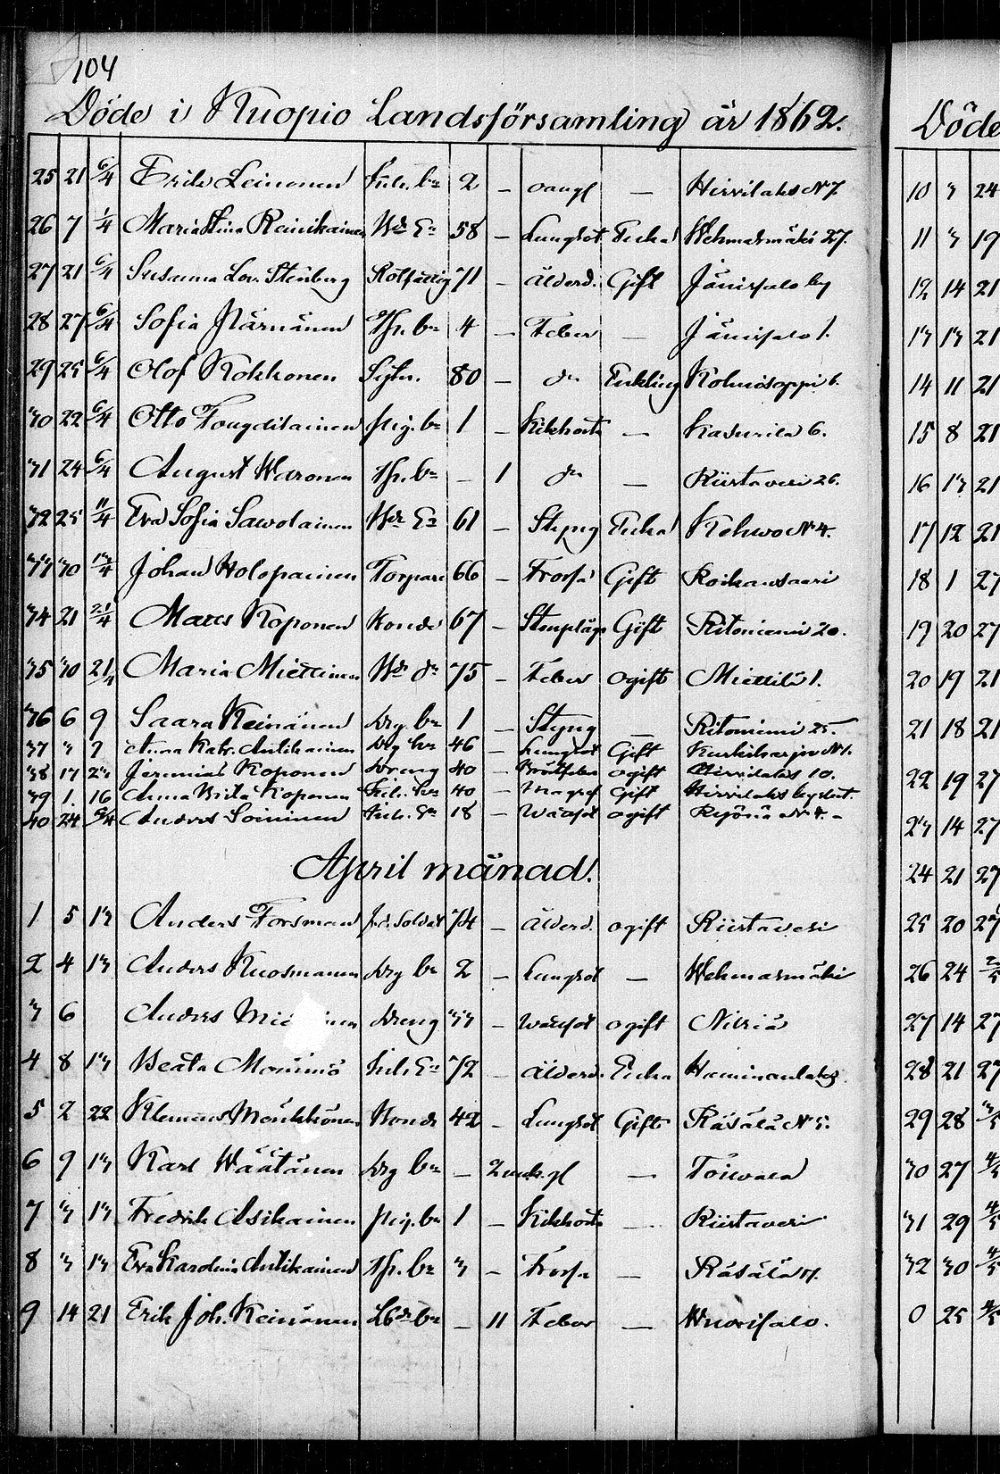 104
Döde i Kuopio Landsförsamling år 1862.
25 21 6/4 Erik Leinonen Inh. bn 2 – oangf — Hirvilaks N 7.
26 7 1/4 Maria Stina Reinikainen 58 – Lungsot Enka Wehmasmäki 27.
27 21 6/4 Susanna Lov. Stenberg Rotfattig 71 – Ålderd. Gift Jänisalo by
28 27 6/4 Sofia Närvänen bn 4 – Feber — Jänisalo 1.
29 25 6/4 Olof Kokkonen 80 – do Enkling Kolmisoppi 6.
30 22 6/4 Otto Fougdilainen pig. bn 1 – Kikhosta — Kasurila 6.
31 24 6/4 August Waronen bn – 1 do — Riistavesi 26.
32 25 11/4 Eva Sofia Sawolainen 61 – Styng Enka Kehwo N 4.
33 30 13/4 Johan Holopainen Torpare 66 – Frossa Gift Roikansaari
34 21 21/4 Macus Koponen Bonde 67 – Gift Ritoniemi 20.
35 30 21/4 Maria Miettinen 75 – Feber ogift Miettilä 1.
36 6 9 Saara Keinänen drg bn 1 – Styng — Ritoniemi 25.
37 3 7 Anna Katr. Antikainen drg 46 – Lungsot Gift Kurkiharju N 1.
38 17 23 Jeremias Koponen dreng 40 – ogift Hirvilaks 10.
39 1. 16 Anna Brita Koponen 40 – Gift Hirvilaks
40 24 Anders Soininen Inh. Sn 18 – Wattsot ogift
April månad.
1 5 13 Anders Forsman Soldat 74 – Ålderd. ogift Riistavesi
2 4 13 Anders Kuosmanen drg bn 2 – Lungsot — Wehmasmäki
3 6 Anders Mi nen dreng 33 – Wattsot ogift Nilsiä
4 8 13 Beata Mönönö Inh. En 72 – Ålderd. Enka Haminanlaks
5 2 22 Klemens Mönkkönen Bonde 42 – Lungsot Gift Räsälä N 5.
6 9 13 Karl Wäätänen drg bn – 2 gf — Toivala
7 3 13 Fredrik Asikainen pig. bn 1 – Kikhosta — Riistavesi
8 3 13 Eva Karolina Antikainen bn 3 – Frossa — Räsälä
9 14 21 Erik Joh. Keinänen bn – 11 Feber — Wuorisalo.
Döde
10 3 24
11 3 19
12 14 21
13 13 21
14 11 21
15 8 21
16 13 21
17 12 21
18 1 27
19 20 27
20 19 21
21 18 21
22 19 27
23 14 27
24 21 27
25 20 27
26 24 2/5
27 14 27
28 21 27
29 28 3/5
30 27 4/5
31 29 4/5
32 30 4/5
0 25 4/5